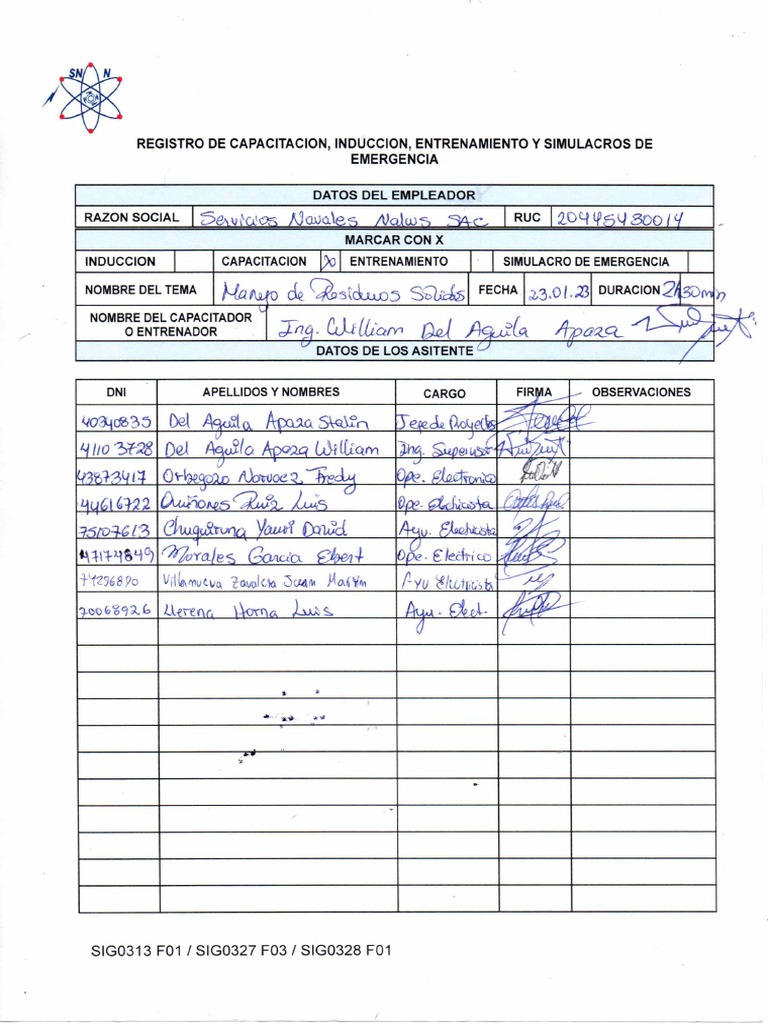 SN N
REGISTRO DE CAPACITACION, INDUCCION, ENTRENAMIENTO Y SIMULACROS DE
EMERGENCIA
DATOS DEL EMPLEADOR
RAZON SOCIAL Servicios Navales Nalws SAC RUC 20445480014
MARCAR CON X
INDUCCION CAPACITACION X ENTRENAMIENTO SIMULACRO DE EMERGENCIA
NOMBRE DEL TEMA Manejo de Residuos Solidos FECHA 23.01.23 DURACION 2h30min
NOMBRE DEL CAPACITADOR
O ENTRENADOR Ing. William Del Aguila Apaza
DATOS DE LOS ASITENTE
DNI APELLIDOS Y NOMBRES CARGO FIRMA OBSERVACIONES
40340835 Del Aguila Apaza Stalin Jefe de Proyectos
41103728 Del Aguila Apaza William Ing. Supervisor
43873417 Orbegozo Narvaez Fredy Ope. Electronico
44616722 Quiñones Ruiz Luis Ope. Electricista
75107613 Chuquiruna Yauri David Ayu. Electricista
47174849 Morales Garcia Ebert Ope. Electrico
74296890 Villanueva Zavaleta Juan Martin Ayu Electricista
70068926 Llerena Horna Luis Ayu. Elect.
SIG0313 F01 / SIG0327 F03 / SIG0328 F01